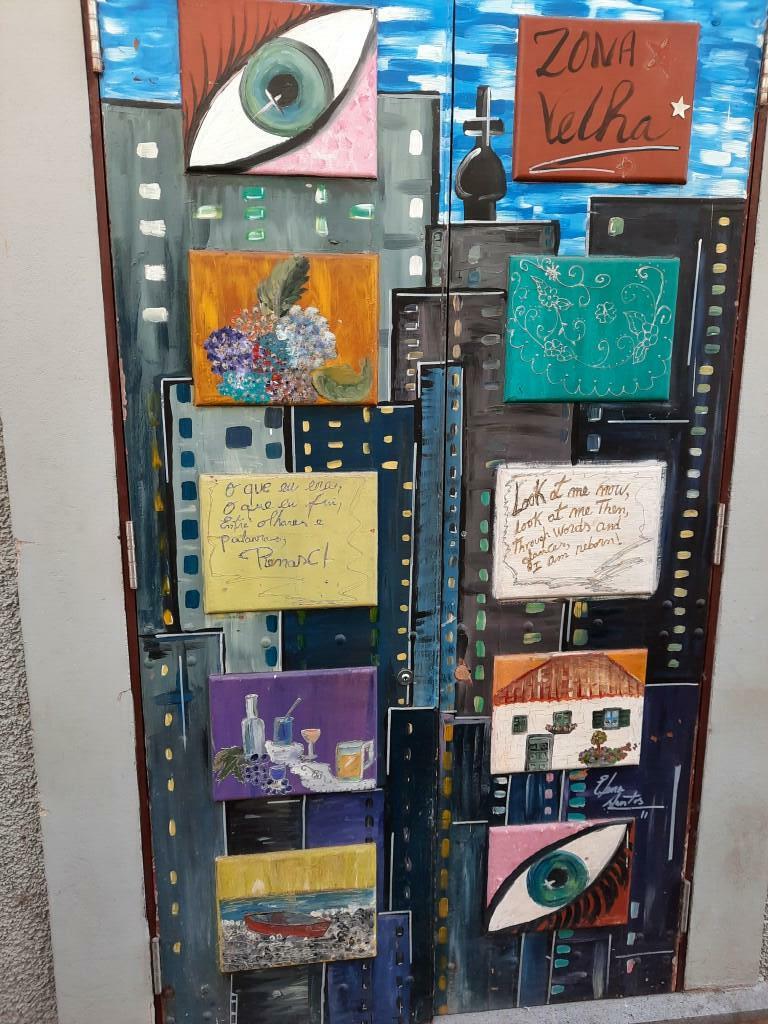 ZONA
Velha
O que eu era,
O que eu fui,
Entre olhares e
palavras,
Renasci!
Look at me now,
Look at me Then,
Through Words and
glances,
I am reborn!
Santos
11